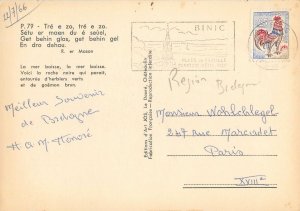 12/7/66
P. 79 - Tré e zo, tré e zo.
Setu er maen du é seùel,
Get behin glas, get behin gel
En dro dehou.
E. er Moæn
La mer baisse, la baisse.
Voici la roche noire qui paraît,
entourée d'herbiers verts
et de goëmon brun.
Meilleur Souvenir
de Bretagne
H et M. Honoré
Editions d'Art JOS, Le Doaré, Châteaulin
Fabrication Française - Reproduction interdite
BINIC
PLAGE DE FAMILLE
Région Bretagne
Monsieur Wohlschlegel
247 Rue Marcadet
Paris
XVIIIe